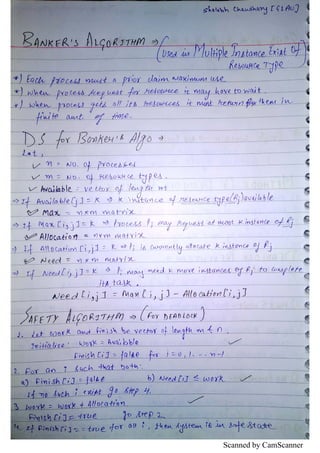 Shobhit Chaudhary [GLAU]
BANKER'S ALGORITHM ⇒ (Used in Multiple Instance Exist of
Resource Type
*) Each process must a prior claim maximum use.
*) When process request for resource it may have to wait.
*) When process gets all its resources it must return for them in
finite amt of time.
DS for Banker's Algo →
Let,
✓ n = No. of processes
✓ m = No. of resource types.
✓ Available = vector of length m
→ If Available[j] = k ⇒ k instance of resource type(Rj) available
✓ Max = n×m matrix
→ If Max[i,j] = k ⇒ Process Pi may request at most k instance of Rj.
✓ Allocation = n×m matrix
→ If Allocation[i,j] = k ⇒ Pi is currently allocate k instance of Rj
✓ Need = n×m matrix
→ If Need[i,j] = k ⇒ Pi may need k more instances of Rj to complete
its task.
Need[i,j] = Max[i,j] - Allocation[i,j]
SAFETY ALGORITHM ⇒ (For DEADLOCK)
1. Let work and finish be vector of length m & n.
Initialize: Work = Available
Finish[i] = false for i = 0, 1, ... n-1
2. For an i such that both:
a) Finish[i] = false b) Need[i] ≤ work
if no such i exist go step 4.
3. work = work + Allocation
Finish[i] = true go step 2
4. If Finish[i] = = true for all i, then system is in safe state
Scanned by CamScanner